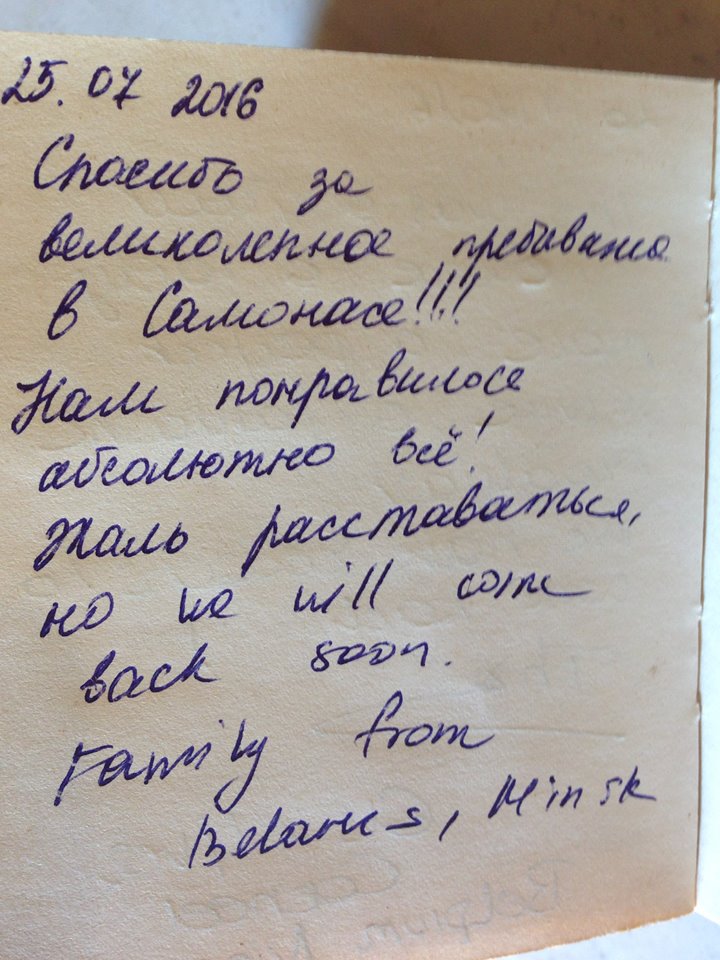 25.07 2016
Спасибо за
великолепное пребивание
в Самонасе!!!
Нам понравилось
абсолютно всё!
Жаль расставаться,
но we will come
back soon.
Family from
Belarus, Minsk